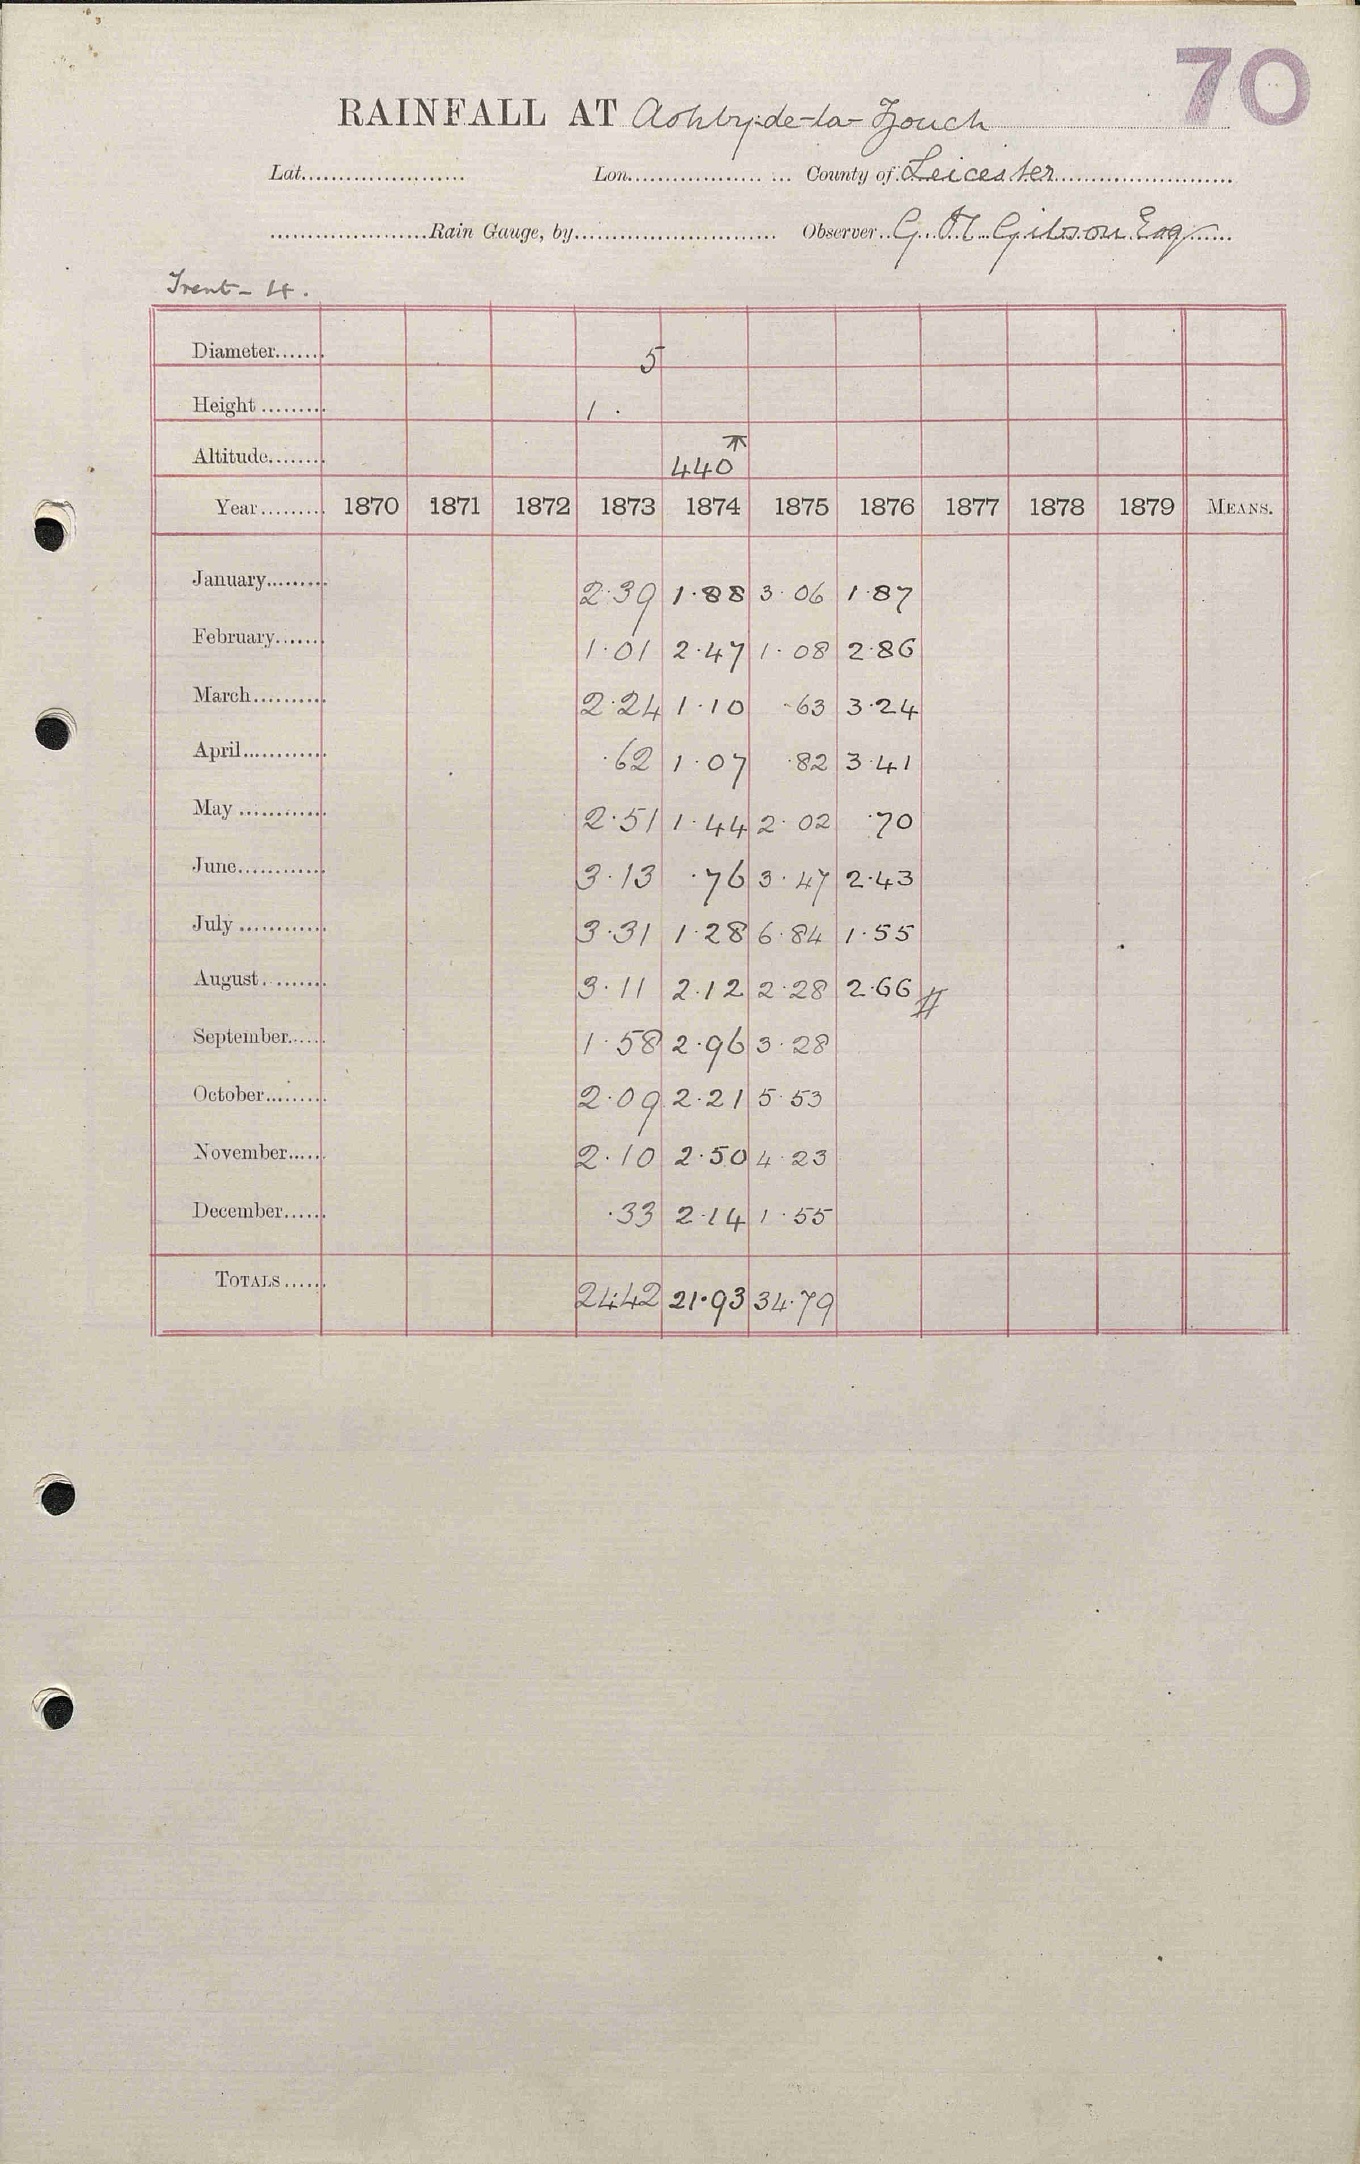 70
RAINFALL AT Ashby-de-la-Zouch
Lat. Lon. County of Leicester
Rain Gauge, by Observer G. H. Gibson Esq
Trent - 4.
Diameter 5
Height 1 ·
Altitude 440
Year 1870 1871 1872 1873 1874 1875 1876 1877 1878 1879 MEANS.
January 2·39 1·88 3·06 1·87
February 1·01 2·47 1·08 2·86
March 2·24 1·10 ·63 3·24
April ·62 1·07 ·82 3·41
May 2·51 1·44 2·02 ·70
June 3·13 ·76 3·47 2·43
July 3·31 1·28 6·84 1·55
August 3·11 2·12 2·28 2·66 //
September 1·58 2·96 3·28
October 2·09 2·21 5·53
November 2·10 2·50 4·23
December ·33 2·14 1·55
TOTALS 24·42 21·93 34·79